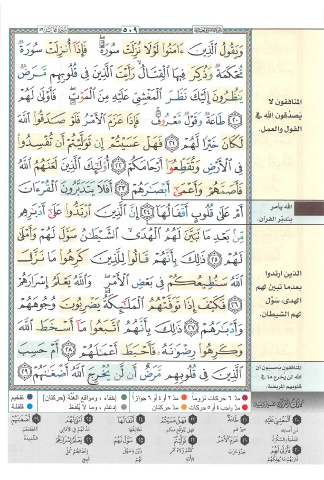 ٥٠٩
وَيَقُولُ ٱلَّذِينَ ءَامَنُوا۟ لَوْلَا نُزِّلَتْ سُورَةٌ ۖ فَإِذَآ أُنزِلَتْ سُورَةٌ
مُّحْكَمَةٌ وَذُكِرَ فِيهَا ٱلْقِتَالُ ۙ رَأَيْتَ ٱلَّذِينَ فِى قُلُوبِهِم مَّرَضٌ
يَنظُرُونَ إِلَيْكَ نَظَرَ ٱلْمَغْشِىِّ عَلَيْهِ مِنَ ٱلْمَوْتِ ۖ فَأَوْلَىٰ لَهُمْ
٢٠ طَاعَةٌ وَقَوْلٌ مَّعْرُوفٌ ۚ فَإِذَا عَزَمَ ٱلْأَمْرُ فَلَوْ صَدَقُوا۟ ٱللَّهَ
لَكَانَ خَيْرًا لَّهُمْ ٢١ فَهَلْ عَسَيْتُمْ إِن تَوَلَّيْتُمْ أَن تُفْسِدُوا۟
فِى ٱلْأَرْضِ وَتُقَطِّعُوٓا۟ أَرْحَامَكُمْ ٢٢ أُو۟لَـٰٓئِكَ ٱلَّذِينَ لَعَنَهُمُ ٱللَّهُ
فَأَصَمَّهُمْ وَأَعْمَىٰٓ أَبْصَـٰرَهُمْ ٢٣ أَفَلَا يَتَدَبَّرُونَ ٱلْقُرْءَانَ
أَمْ عَلَىٰ قُلُوبٍ أَقْفَالُهَآ ٢٤ إِنَّ ٱلَّذِينَ ٱرْتَدُّوا۟ عَلَىٰٓ أَدْبَـٰرِهِم
مِّنۢ بَعْدِ مَا تَبَيَّنَ لَهُمُ ٱلْهُدَى ۙ ٱلشَّيْطَـٰنُ سَوَّلَ لَهُمْ وَأَمْلَىٰ
لَهُمْ ٢٥ ذَٰلِكَ بِأَنَّهُمْ قَالُوا۟ لِلَّذِينَ كَرِهُوا۟ مَا نَزَّلَ
ٱللَّهُ سَنُطِيعُكُمْ فِى بَعْضِ ٱلْأَمْرِ ۖ وَٱللَّهُ يَعْلَمُ إِسْرَارَهُمْ
٢٦ فَكَيْفَ إِذَا تَوَفَّتْهُمُ ٱلْمَلَـٰٓئِكَةُ يَضْرِبُونَ وُجُوهَهُمْ
وَأَدْبَـٰرَهُمْ ٢٧ ذَٰلِكَ بِأَنَّهُمُ ٱتَّبَعُوا۟ مَآ أَسْخَطَ ٱللَّهَ
وَكَرِهُوا۟ رِضْوَٰنَهُۥ فَأَحْبَطَ أَعْمَـٰلَهُمْ ٢٨ أَمْ حَسِبَ
ٱلَّذِينَ فِى قُلُوبِهِم مَّرَضٌ أَن لَّن يُخْرِجَ ٱللَّهُ أَضْغَـٰنَهُمْ ٢٩
المنافقون لا
يَصدُقون الله في
القول والعمل.
الله يأمر
بتدبّر القرآن.
الذين ارتدوا
بعدما تبيّن لهم
الهدى، سوّل
لهم الشيطان.
المنافقون يحسبون أن
الله لن يخرج ما في
قلوبهم
مدّ ٦ حركات لزوماً
مدّ ٢ أو ٤ أو ٦ جوازاً
إخفاء، ومواقع الغُنَّة (حركتان)
تفخيم
مدّ واجب ٤ أو ٥ حركات
مدّ حركتان
إدغام، وما لا يُلفظ
قلقلة